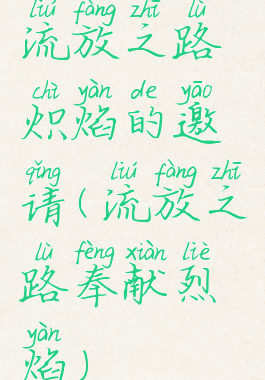 liú fàng zhī lù
流放之路
chì yàn de yāo
炽焰的邀
qǐng liú fàng zhī
请(流放之
lù fèng xiàn liè
路奉献烈
yàn
焰)